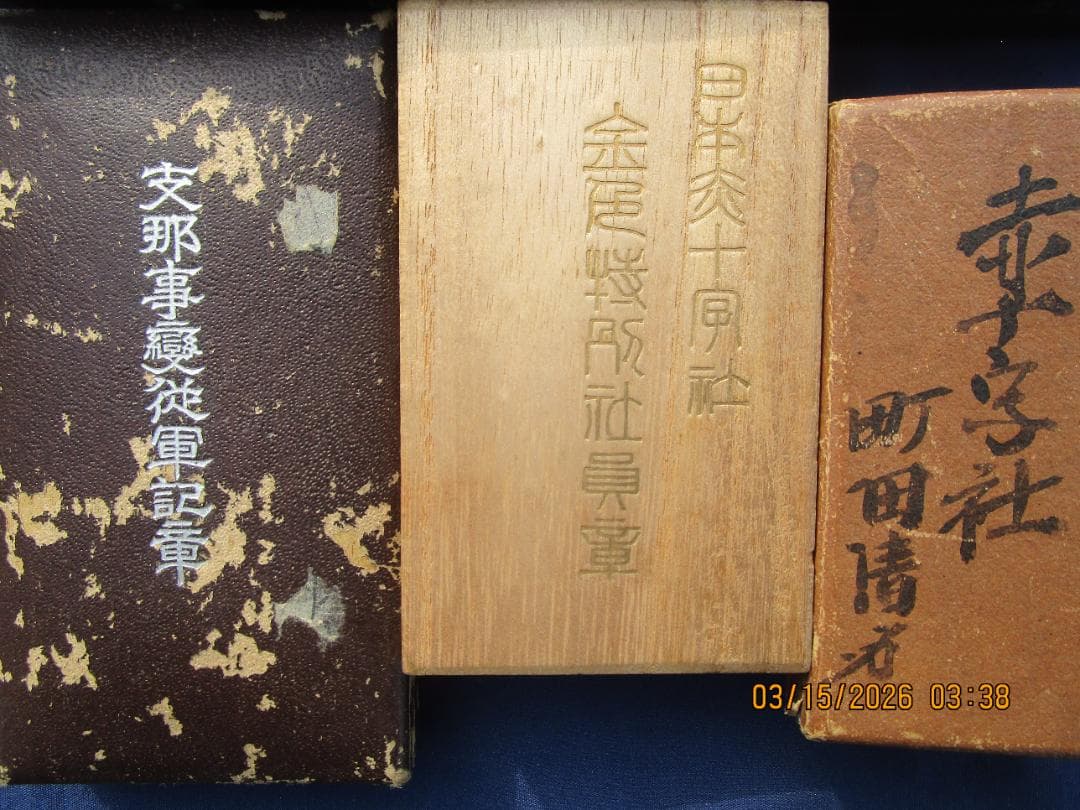 支那事變從軍記章
日本赤十字社
金色特別社員章
赤十字社
町田
03/15/2026 03:38